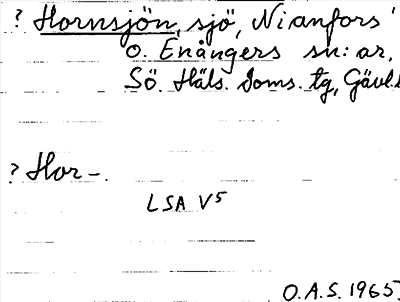 ? Hornsjön, sjö, Nianfors'
o. Enångers sn:ar,
Sö. Häls. Doms. tg, Gävl.l
? Hor-.
LSA V5
O.A.S. 1965.